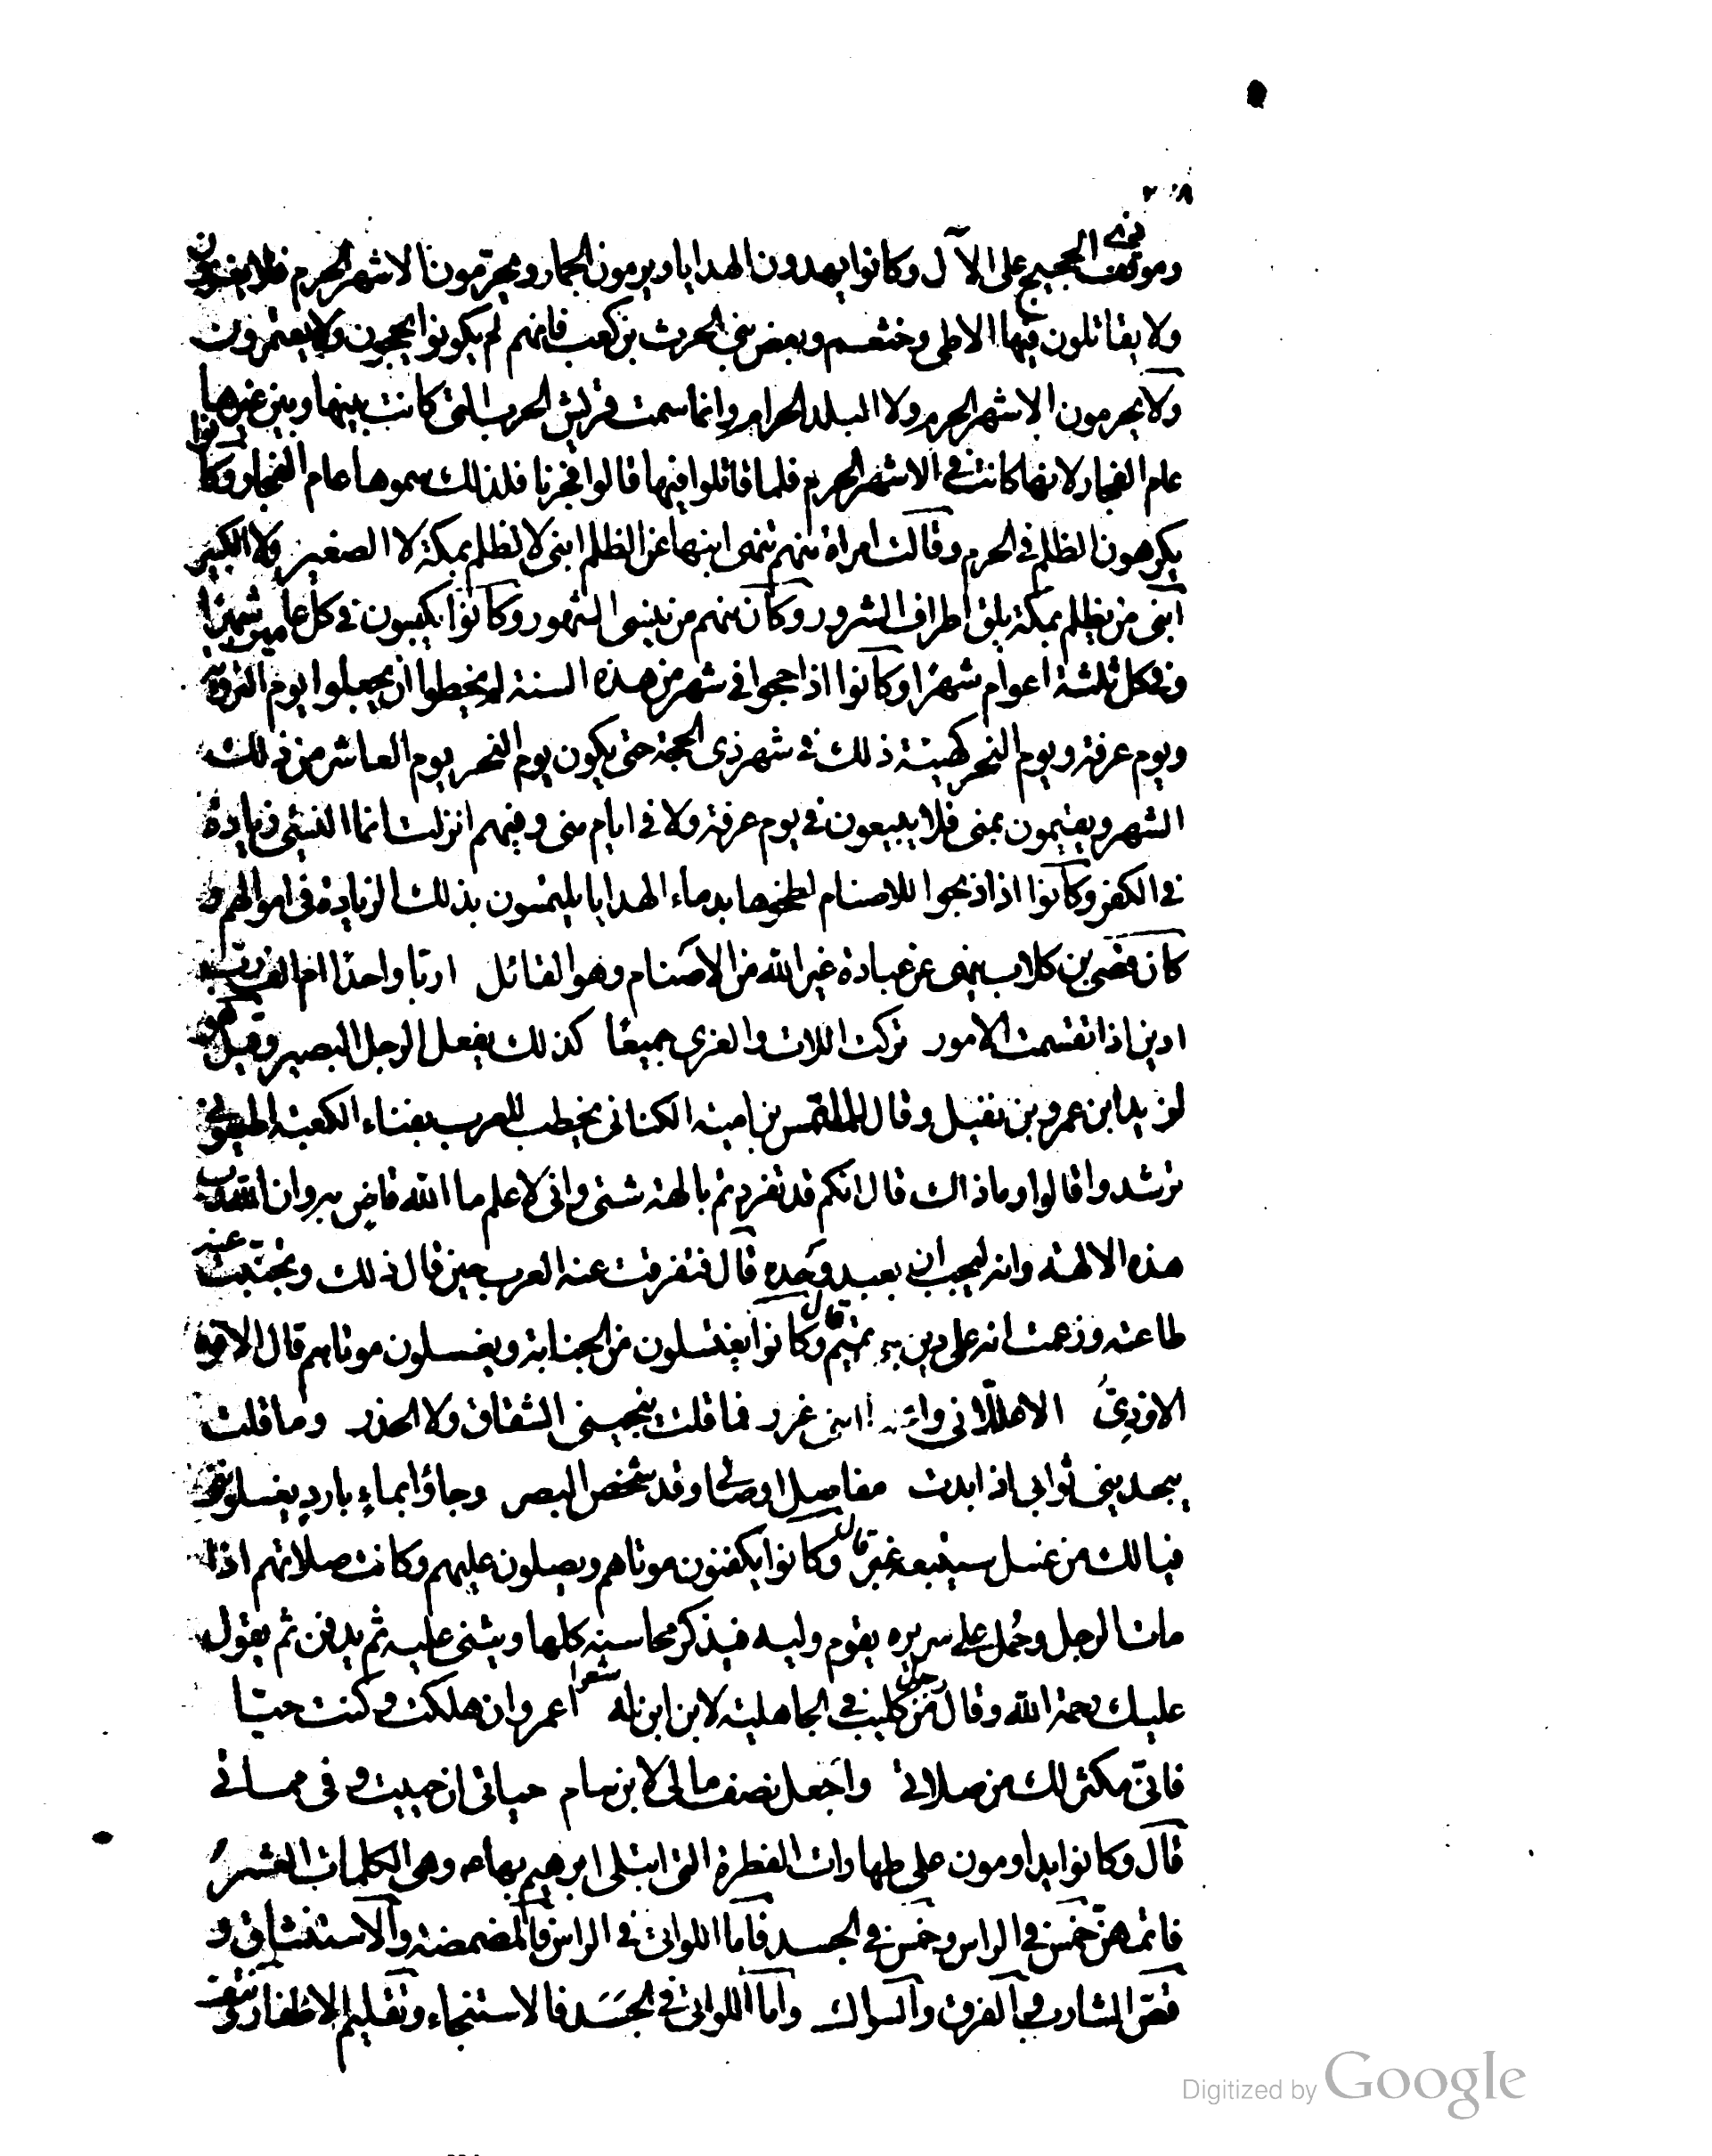 ٢٠٨
وموقف الحجيج على الآل وكانوا يهدون الهدايا ويرمون الجمار ويحرّمون الاشهر الحرم فلا يغزون
ولا يقاتلون فيها الا طي وخثعم وبعض بني الحرث بن كعب فانهم لم يكونوا يحجون ولا يعتمرون
ولا يحرمون الاشهر الحرم ولا البلد الحرام وانما سمت قريش الحرب التي كانت بينها وبين غيرها
عام الفجار لانها كانت في الاشهر الحرم فلما قاتلوا فيها قالوا فجرنا فلذلك سموها عام الفجار وكانوا
يكرهون الظلم في الحرم وقالت امراة منهم تنهى ابنها عن الظلم ابني لا تظلم بمكة لا الصغير ولا الكبير
ابني من يظلم بمكة يلق اطراف الشرور وكان منهم من ينسى الشهور وكانوا يكبسون في كل عامين شهرًا
وفي كل ثلثة اعوام شهرًا وكانوا اذا حجوا في شهر من هذه السنة لم يخطوا ان يجعلوا يوم التروية
ويوم عرفة ويوم النحر كهيئة ذلك في شهر ذي الحجة حتى يكون يوم النحر يوم العاشر من ذلك
الشهر ويقيمون بمنى فلا يبيعون في يوم عرفة ولا في ايام منى وفيهم انزلت انما النسيء زيادة
في الكفر وكانوا اذا ذبحوا للاصنام لطخوها بدماء الهدايا يلتمسون بذلك الزيادة في اموالهم و
كان قصي بن كلاب ينهى عن عبادة غير الله من الاصنام وهو القائل اربا واحدًا ام الف رب
ادين اذا تقسمت الامور تركت اللات والعزى جميعًا كذلك يفعل الرجل البصير وقيل هي
لزيد ابن عمرو بن نفيل وقال المتلمس بن امية الكناني يخطب للعرب بفناء الكعبة اطيعوني
ترشدوا قالوا وما ذاك قال انكم قد تفردتم بالهة شتى واني لاعلم ما الله قاض به وان الله رب
هذه الالهة وانه ليحب ان يعبد وحده قال فتفرقت عنه العرب حين قال ذلك وتجنبت عنه
طاعته وزعمت انه على دين بني تميم قال وكانوا يغتسلون من الجنابة ويغسلون موتاهم قال الافوه
الاودي الا عللاني واعلما انني غرر فما قلت ينجيني الشقاق ولا الحذر وما قلت
يجديني ثوابي اذا بدت مفاصل اوصالي وقد شخص البصر وجاؤا بماء بارد يغسلونني
فيا لك من غسل سيتبعه غبر قال وكانوا يكفنون موتاهم ويصلون عليهم وكانت صلاتهم اذا
مات الرجل وحُمل على سريره يقوم وليه فيذكر محاسنه كلها ويثني عليه ثم يدفن ثم يقول
عليك رحمة الله وقال رجل من كلب في الجاهلية لابن ابن له شعرا اعمرو ان هلكت وكنت حيا
فاني مكثر لك من صلاتي واجعل نصف مالي لابن سام حياتي ان حييت وفي مماتي
قال وكانوا يداومون على طهارات الفطرة التي ابتلى ابرهيم بها وهي الكلمات العشر
فاتمهن خمس في الراس وخمس في الجسد فاما اللواتي في الراس فالمضمضة والاستنشاق و
قص الشارب والفرق والسواك واما اللواتي في الجسد فالاستنجاء وتقليم الاظفار ونتف
Digitized by Google